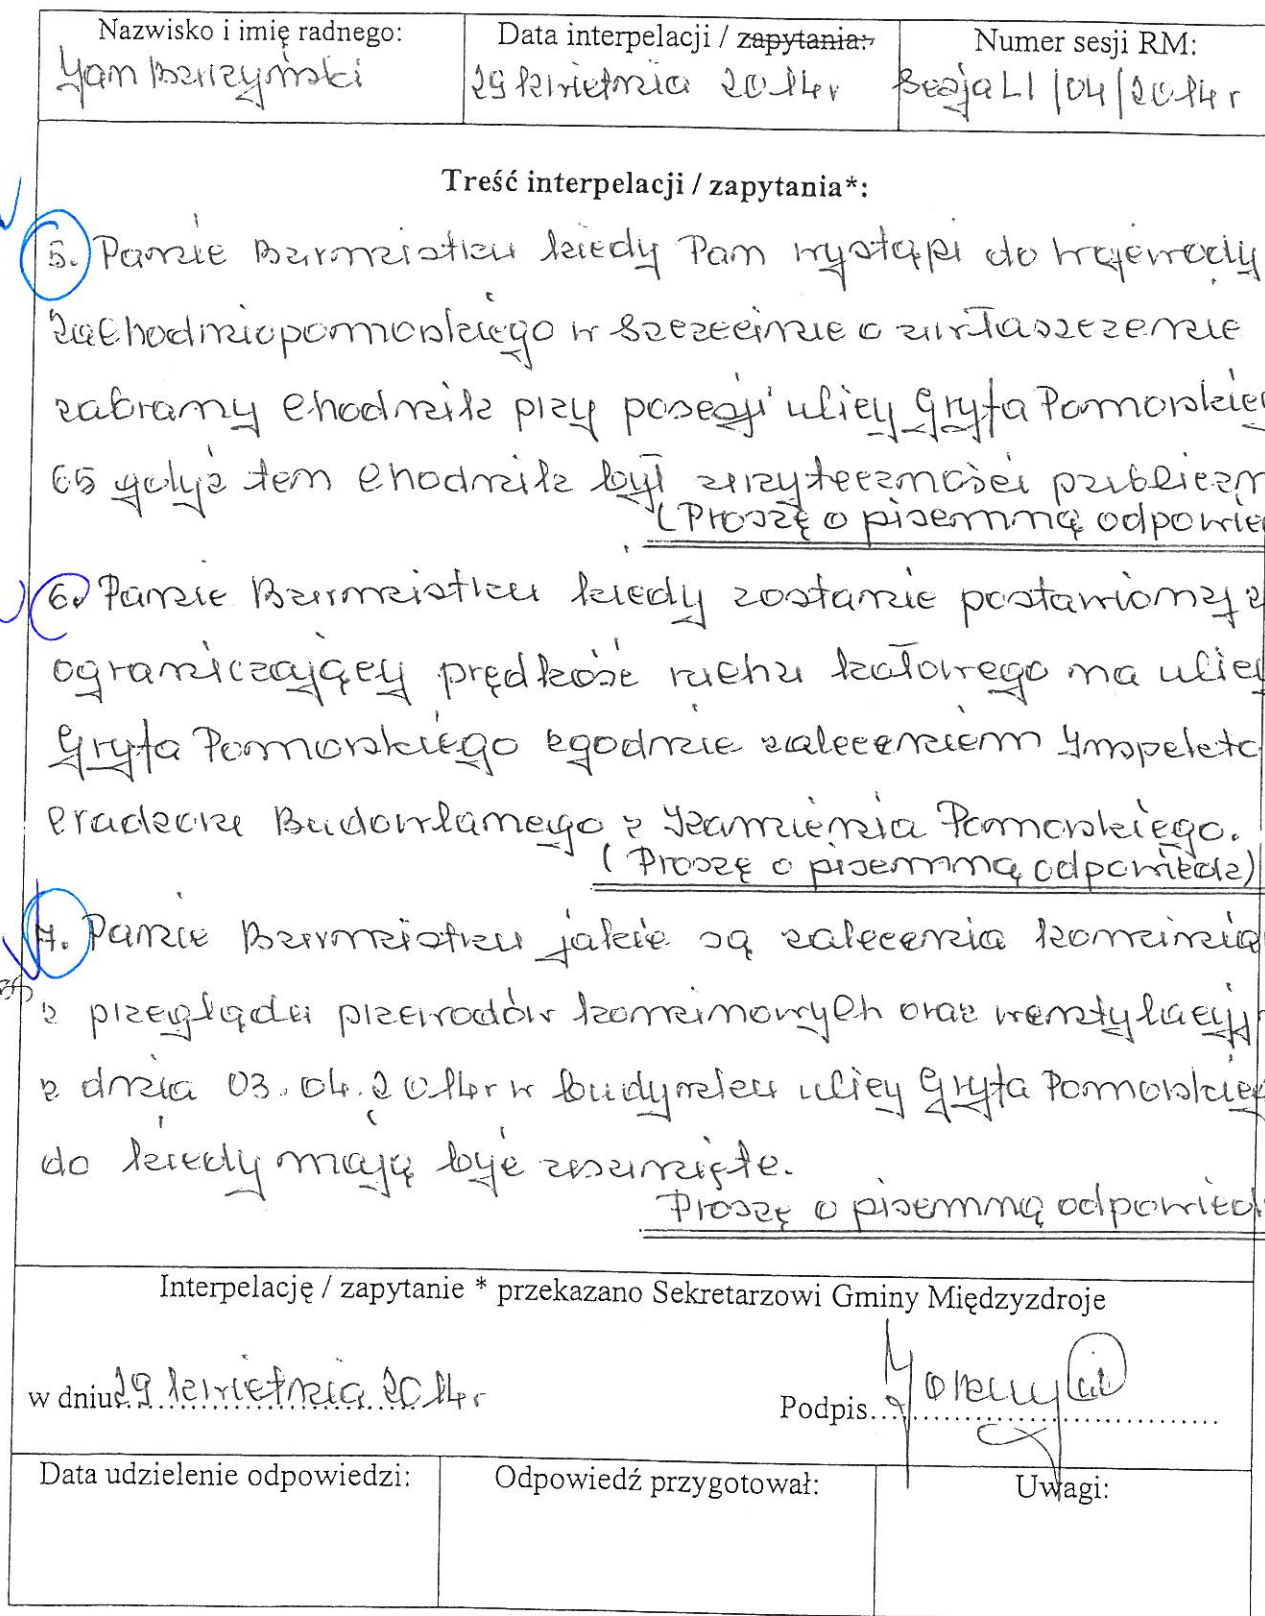 Nazwisko i imię radnego: Data interpelacji / zapytania: Numer sesji RM:
Jan 29 kwietnia 2014r Sesja LI /04/2014r
Treść interpelacji / zapytania*:
5. Panie Burmistrzu kiedy Pan wystąpi do wojewody
zachodniopomorskiego w Szczecinie o zwłaszczenie
zabrany chodnik przy posesji ulicy Gryfa Pomorskie
65 gdyż ten chodnik był użyteczności publiczn
(Proszę o pisemną odpowie
6. Panie Burmistrzu kiedy zostanie postawiony z
ograniczający prędkość ruchu kołowego na ulicy
Gryfa Pomorskiego zgodnie zaleceniem Inspekto
Budowlanego z Kamienia Pomorskiego.
(Proszę o pisemną odpowiedź)
7. Panie Burmistrzu jakie są zalecenia kominia
z przeglądu przewodów kominowych oraz wentylacyj
z dnia 03.04.2014r w budynku ulicy Gryfa Pomorskieg
do kiedy mają być usunięte.
Proszę o pisemną odpowied
Interpelację / zapytanie * przekazano Sekretarzowi Gminy Międzyzdroje
w dniu 29 kwietnia 2014r Podpis
Data udzielenie odpowiedzi: Odpowiedź przygotował: Uwagi: